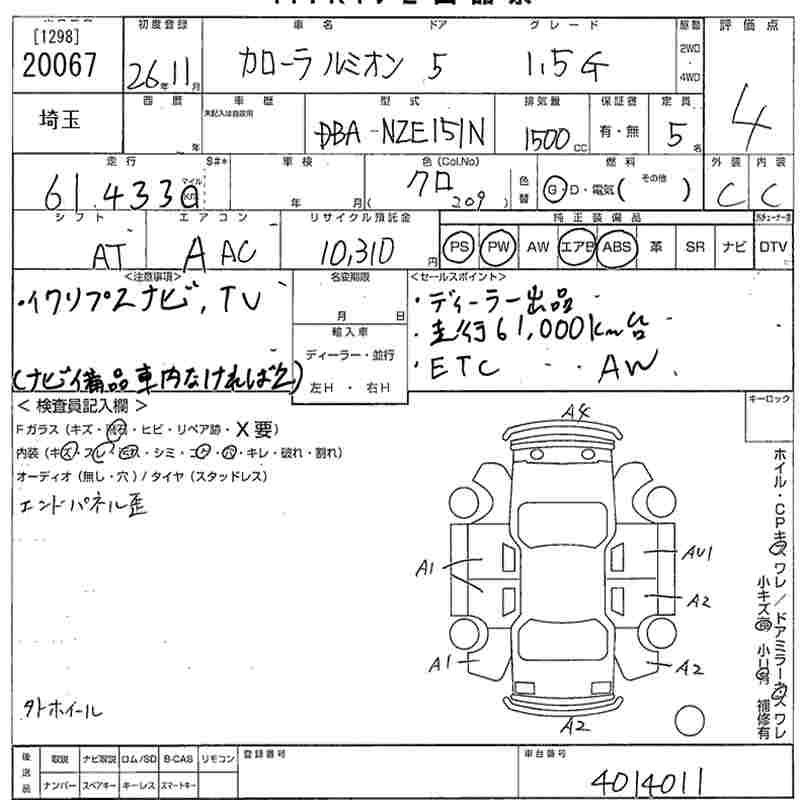 [1298]
20067
初度登録
26年11月
車名
カローラ ルミオン
ドア
5
グレード
1.5G
駆動
2WD
4WD
評価点
4
埼玉
西暦
年
車歴
未記入は自家用
型式
DBA-NZE151N
排気量
1500cc
保証書
有・無
定員
5名
走行
61,433
マイル
Km
S#*
車検
年 月
色(Col.No)
クロ
(209)
色替
燃料
G・D・電気(その他)
外装
C
内装
C
シフト
AT
エアコン
AAC
リサイクル預託金
10,310円
純正装備品
PS PW AW エアB ABS 革 SR ナビ DTV
<注意事項>
・イクリプスナビ, TV
(ナビ備品車内なければ欠)
名変期限
月 日
輸入車
ディーラー・並行
左H・右H
<セールスポイント>
・ディーラー出品
・走行61,000km台
・ETC ・・AW.
<検査員記入欄>
Fガラス(キズ・飛石・ヒビ・リペア跡・X要)
内装(キズ・スレ・ヨゴレ・シミ・コゲ・穴・キレ・破れ・割れ)
オーディオ(無し・穴)/タイヤ(スタッドレス)
エンドパネル歪
外ホイール
キーロック
A4
A1
AU1
A2
A1
A2
A2
ホイル・CPキズ ワレ/ドアミラーキズ ワレ
小キズ有 小U有 補修有
後送品
取説 ナビ取説 ロム/SD B-CAS リモコン
ナンバー スペアキー キーレス スマートキー
登録番号
車台番号
4014011